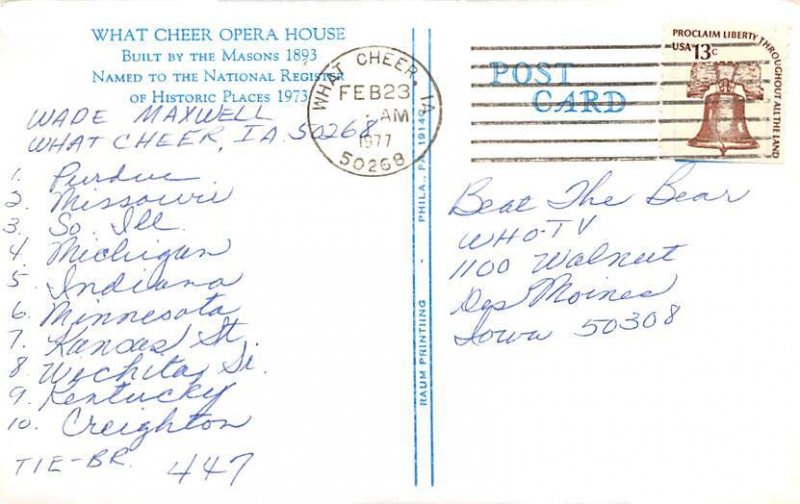 WHAT CHEER OPERA HOUSE
BUILT BY THE MASONS 1893
NAMED TO THE NATIONAL REGISTER
OF HISTORIC PLACES 1973
WADE MAXWELL
WHAT CHEER, IA 50268
1. Purdue
2. Missouri
3. So. Ill.
4. Michigan
5. Indiana
6. Minnesota
7. Kansas St.
8. Wichita St.
9. Kentucky
10. Creighton
TIE-BR. 447
WHAT CHEER, IA
FEB 23
AM
1977
50268
PHILA., PA 19140
RAUM PRINTIING
POST
CARD
PROCLAIM LIBERTY THROUGHOUT ALL THE LAND
USA 13c
Beat The Bear
WHO-TV
1100 Walnut
Des Moines
Iowa 50308